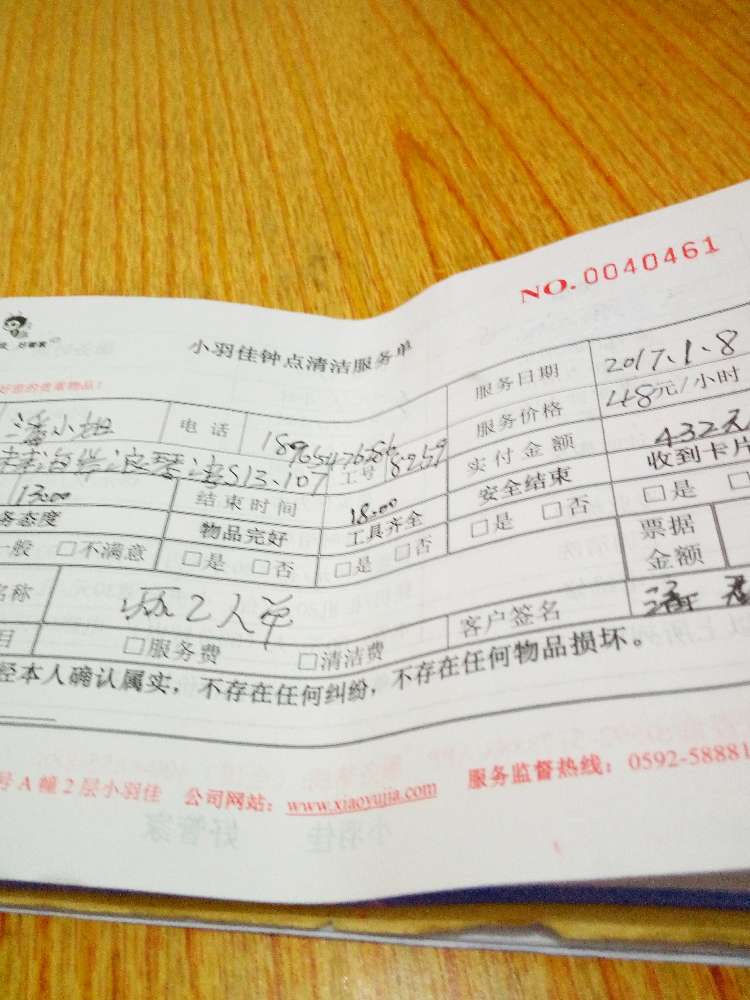 NO.0040461
好管家
小羽佳钟点清洁服务单
好您的贵重物品!
潘小姐 电话 服务日期 2017.1.8
服务价格 48元/小时
S13.107 工号 实付金额 432元
13.00 结束时间 18.00 安全结束 收到卡片
务态度 物品完好 工具齐全 □是 □否 □是
一般 □不满意 □是 □否 □是 □否 票据金额
名称 2人单 客户签名 潘
目 □服务费 □清洁费
经本人确认属实,不存在任何纠纷,不存在任何物品损坏。
号A幢2层小羽佳 公司网站:www.xiaoyujia.com 服务监督热线:0592-58881